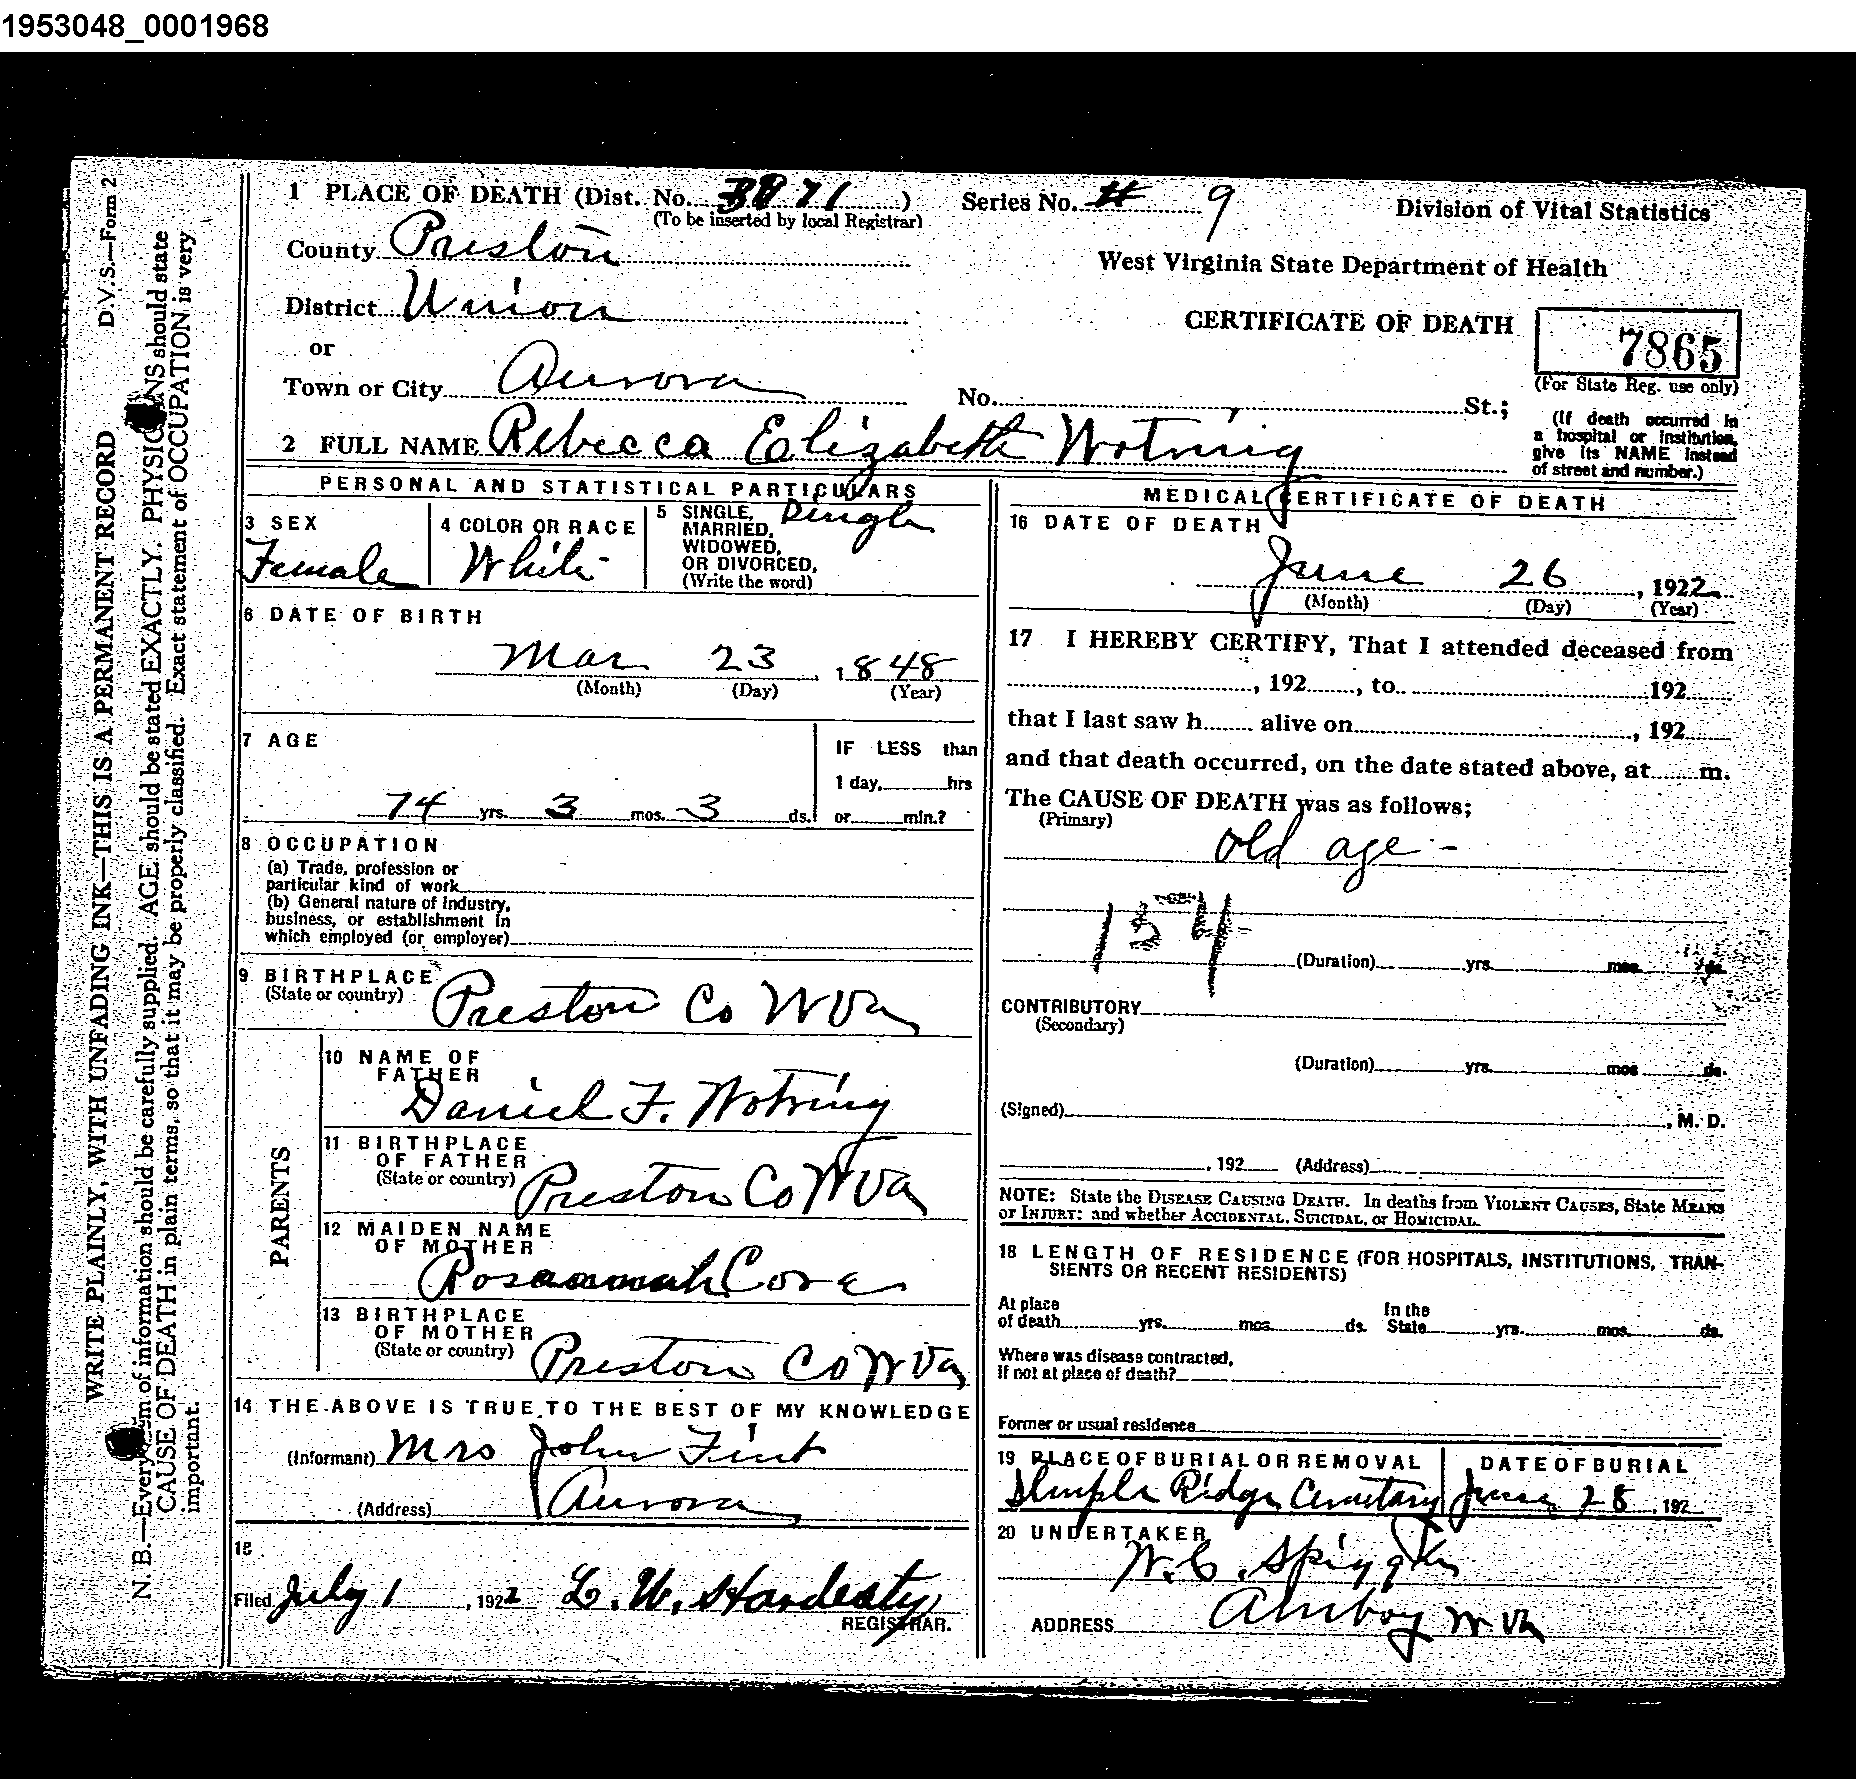 1953048_0001968
D.V.S.—Form 2
WRITE PLAINLY, WITH UNFADING INK—THIS IS A PERMANENT RECORD
N. B.—Every item of information should be carefully supplied. AGE should be stated EXACTLY. PHYSICIANS should state
CAUSE OF DEATH in plain terms, so that it may be properly classified. Exact statement of OCCUPATION is very
important.
1 PLACE OF DEATH (Dist. No. 3871) Series No. 9
(To be inserted by local Registrar)
Division of Vital Statistics
County Preston
West Virginia State Department of Health
District Union
CERTIFICATE OF DEATH
7865
(For State Reg. use only)
or
Town or City Aurora No. St.;
(If death occurred in
a hospital or institution,
give its NAME instead
of street and number.)
2 FULL NAME Rebecca Elizabeth Wotring
PERSONAL AND STATISTICAL PARTICULARS
3 SEX
Female
4 COLOR OR RACE
White
5 SINGLE,
MARRIED,
WIDOWED,
OR DIVORCED,
(Write the word)
Single
6 DATE OF BIRTH
Mar 23, 1848
(Month) (Day) (Year)
7 AGE
74 yrs. 3 mos. 3 ds.
IF LESS than
1 day, hrs
or min.?
8 OCCUPATION
(a) Trade, profession or
particular kind of work
(b) General nature of industry,
business, or establishment in
which employed (or employer)
9 BIRTHPLACE
(State or country)
Preston Co W Va
PARENTS
10 NAME OF
FATHER
Daniel F. Wotring
11 BIRTHPLACE
OF FATHER
(State or country)
Preston Co W Va
12 MAIDEN NAME
OF MOTHER
Rosannah Core
13 BIRTHPLACE
OF MOTHER
(State or country)
Preston Co W Va
14 THE ABOVE IS TRUE TO THE BEST OF MY KNOWLEDGE
(Informant) Mrs John Fint
(Address) Aurora
15
Filed July 1, 1922 L. W. Hardesty
REGISTRAR.
MEDICAL CERTIFICATE OF DEATH
16 DATE OF DEATH
June 26, 1922
(Month) (Day) (Year)
17 I HEREBY CERTIFY, That I attended deceased from
, 192 , to 192
that I last saw h alive on , 192
and that death occurred, on the date stated above, at m.
The CAUSE OF DEATH was as follows;
(Primary)
old age -
154
(Duration) yrs. mos. ds.
CONTRIBUTORY
(Secondary)
(Duration) yrs. mos ds.
(Signed) , M. D.
, 192 (Address)
NOTE: State the DISEASE CAUSING DEATH. In deaths from VIOLENT CAUSES, State MEANS
OF INJURY; and whether ACCIDENTAL, SUICIDAL, or HOMICIDAL.
18 LENGTH OF RESIDENCE (FOR HOSPITALS, INSTITUTIONS, TRAN-
SIENTS OR RECENT RESIDENTS)
At place
of death yrs. mos. ds.
In the
State yrs. mos. ds.
Where was disease contracted,
if not at place of death?
Former or usual residence
19 PLACE OF BURIAL OR REMOVAL
Ridge Cemetary
DATE OF BURIAL
June 28, 192
20 UNDERTAKER
W. C.
ADDRESS Amboy W Va